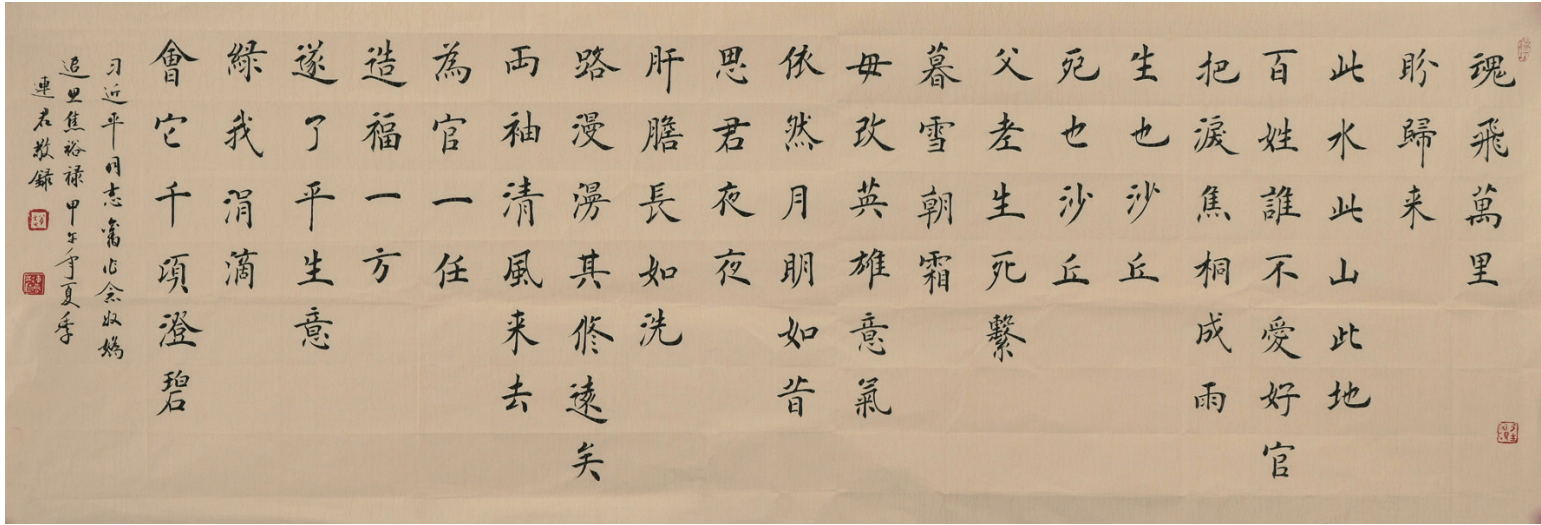 魂飛萬里
盼歸来
此水此山此地
百姓誰不愛好官
把淚焦桐成雨
生也沙丘
死也沙丘
父老生死繫
暮雪朝霜
毋改英雄意氣
依然月明如昔
思君夜夜
肝膽長如洗
路漫漫其修遠矣
両袖清風来去
為官一任
造福一方
遂了平生意
綠我涓滴
會它千頃澄碧
习近平同志舊作念奴嬌
追思焦裕禄甲午年夏季
連君敬錄